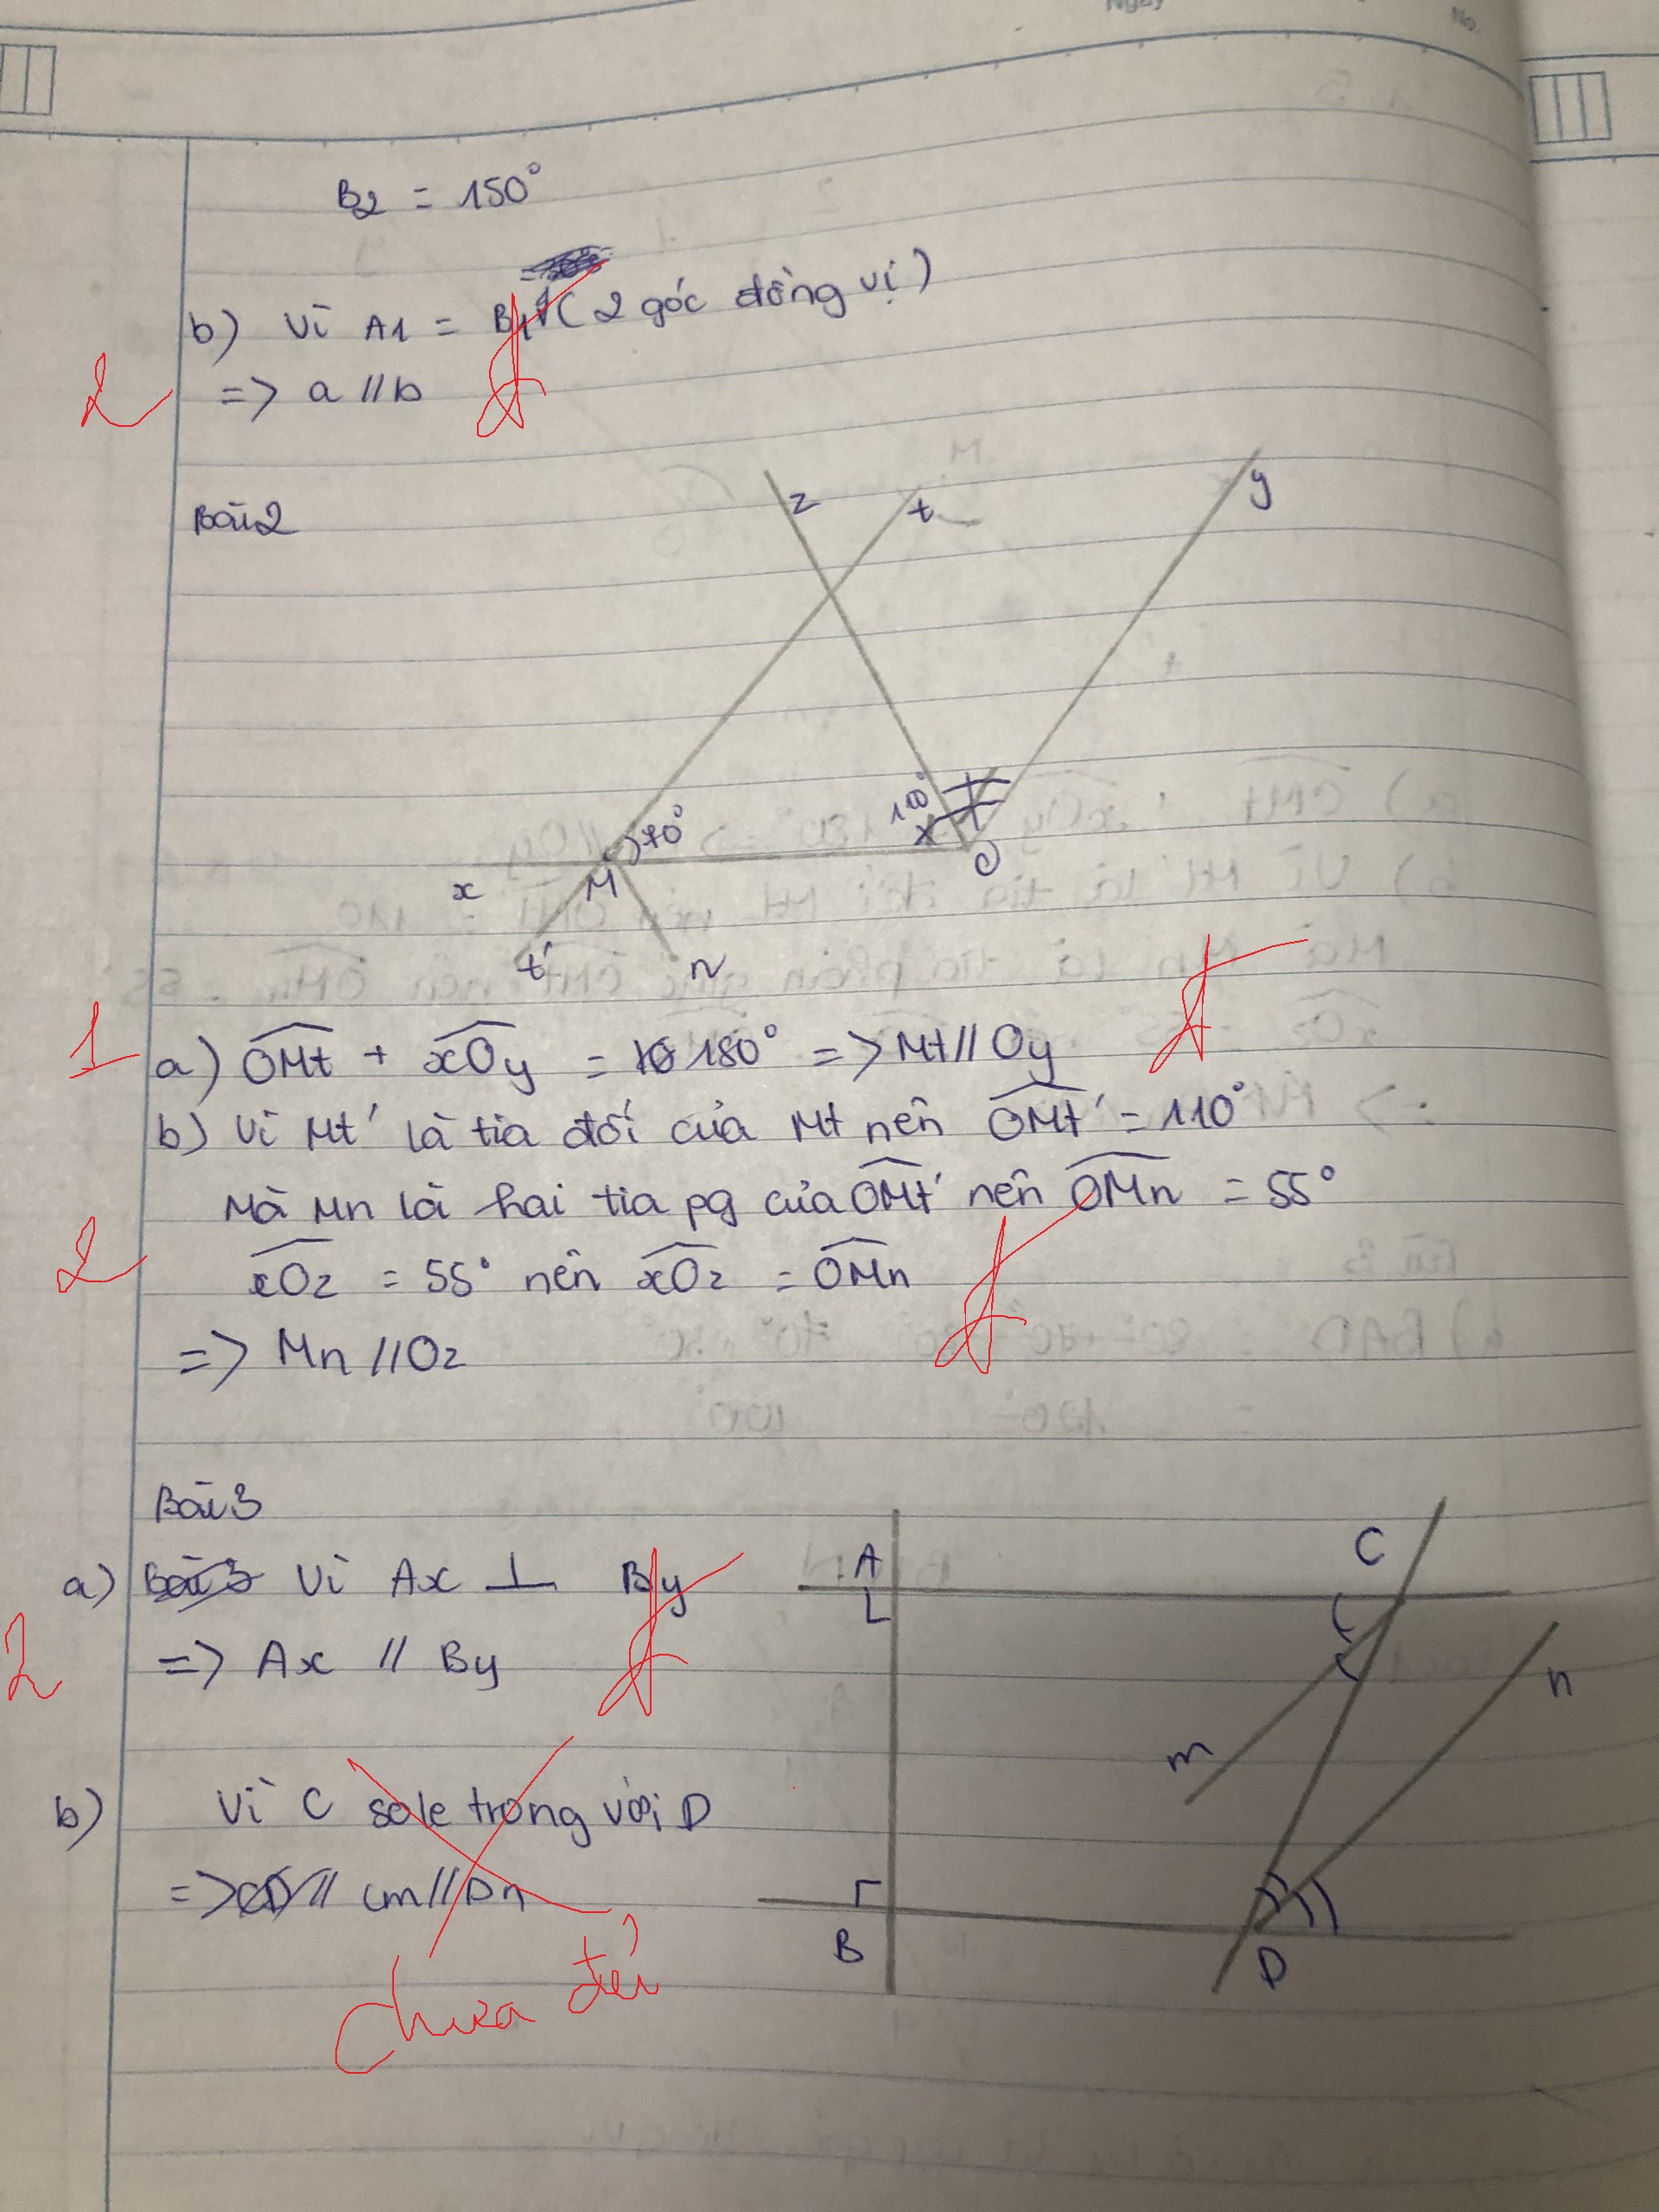 Ngày
No.
B2 = 150°
b) Vì A1 = B1 (2 góc đồng vị)
2
=> a // b
Bài 2
z t y
110°
70°
x M O
t' n
1
a) OMt + xOy = 180° => Mt // Oy
b) Vì Mt' là tia đối của Mt nên OMt' = 110°
Mà Mn là hai tia pg của OMt' nên OMn = 55°
2
xOz = 55° nên xOz = OMn
=> Mn // Oz
Bài 3
A C
a) Bài 3 Vì Ax ⊥ By
2
=> Ax // By
m n
b) Vì C sole trong với D
=> CD // cm // Dn
B D
chưa đủ